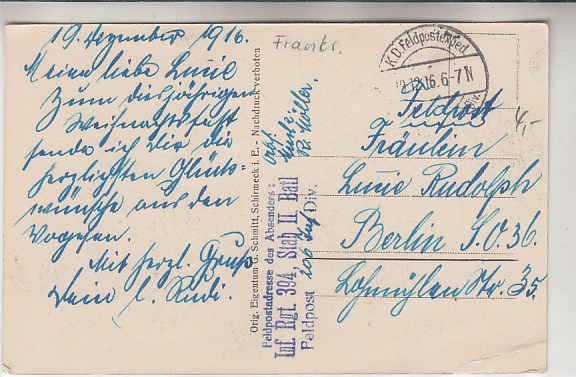 19. Dezember 1916.
Meine liebe Lucie
Zum diesjährigen
Weihnachtsfest
sende ich Dir die
herzlichsten Glück-
wünsche aus den
Vogesen.
Mit herzl. Gruß
Dein l. Rudi.
Frankr.
Orig. Eigentum G. Schmitt, Schirmeck i. E. - Nachdruck verboten
Feldpostadresse des Absenders:
Inf. Rgt. 394, Stab II. Batl
Feldpost 206 Inf Div.
K.D. Feldpostexped.
12.16. 6-7 N
Div.
Feldpost
4,-
Fräulein
Lucie Rudolph
Berlin S.O. 36.
Lohmühlen Str. 35.